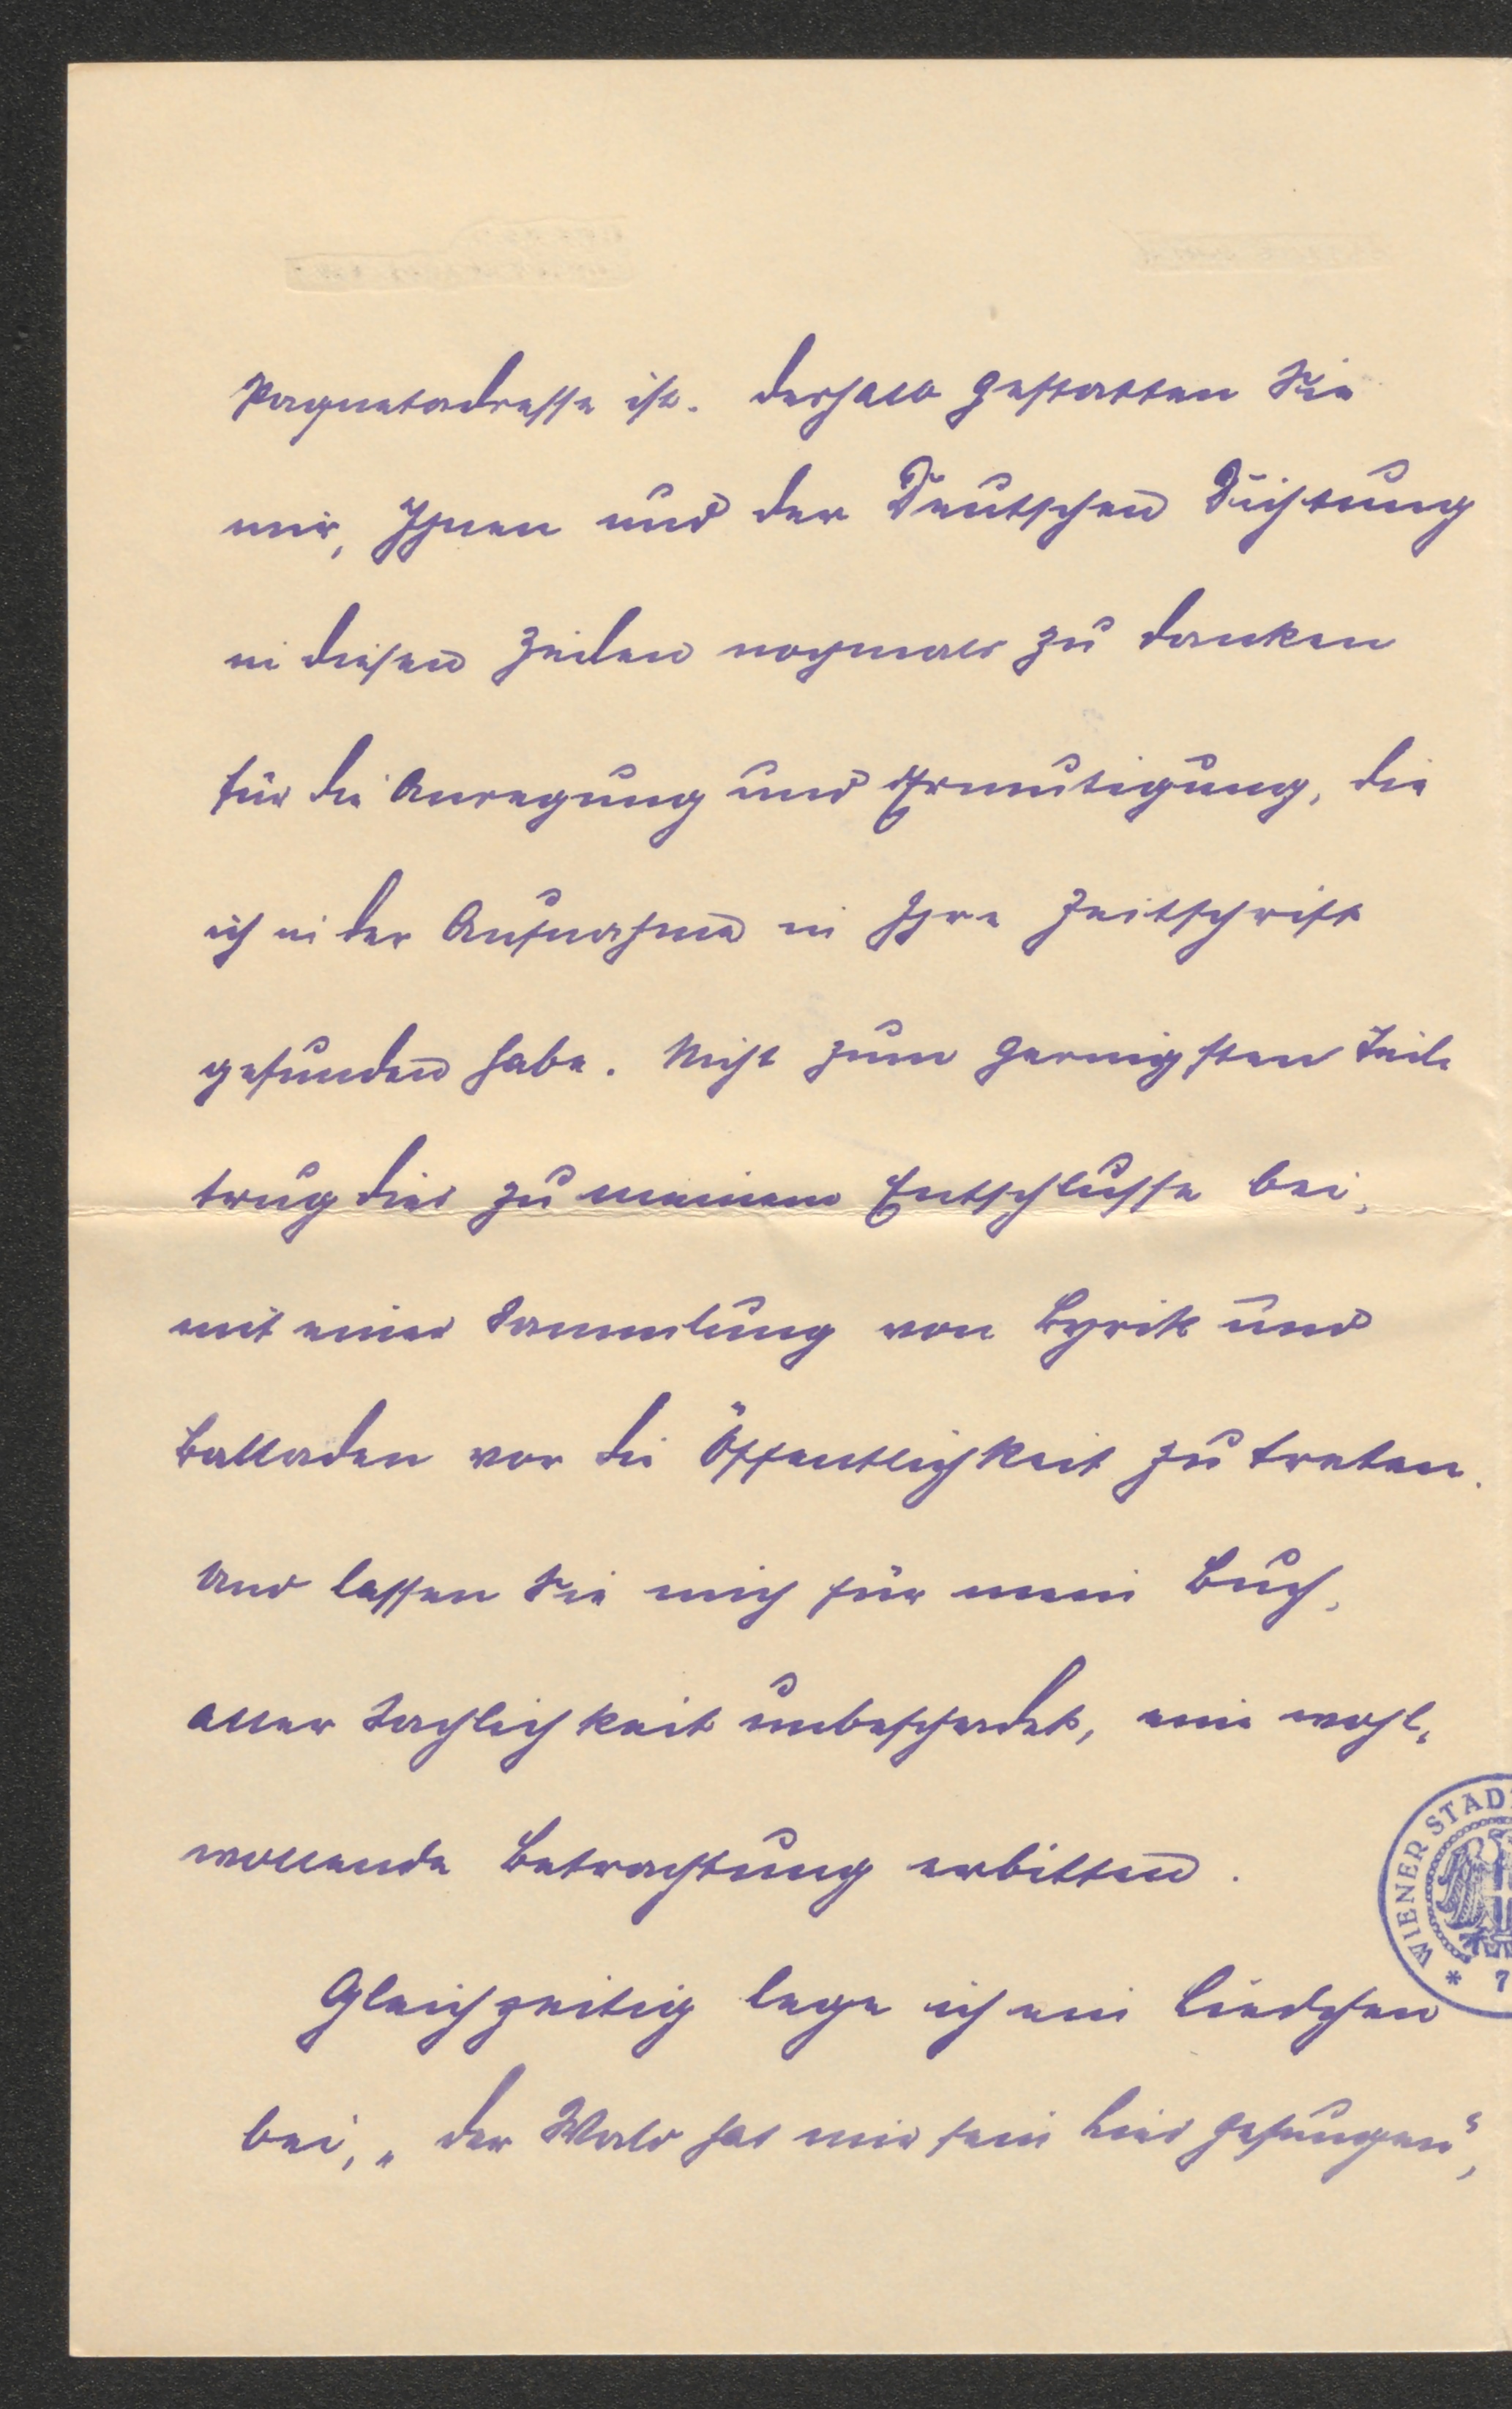 Paquetadresse ist. Deshalb gestatten Sie
mir, Ihnen und der Deutschen Dichtung
in diesen Zeilen nochmals zu danken
für die Anregung und Ermutigung, die
ich in der Aufnahme in Ihre Zeitschrift
gefunden habe. Nicht zum geringsten Teile
trug dies zu meinem Entschlusse bei,
mit einer Sammlung von Lyrik und
Balladen vor die Öffentlichkeit zu treten.
Und lassen Sie mich für mein Buch,
aller Sachlichkeit unbeschadet, eine wohl-
wollende Betrachtung erbitten.
WIENER STAD
* 7
Gleichzeitig lege ich ein Liedchen
bei, „der Wald hat mir sein Lied gesungen“,